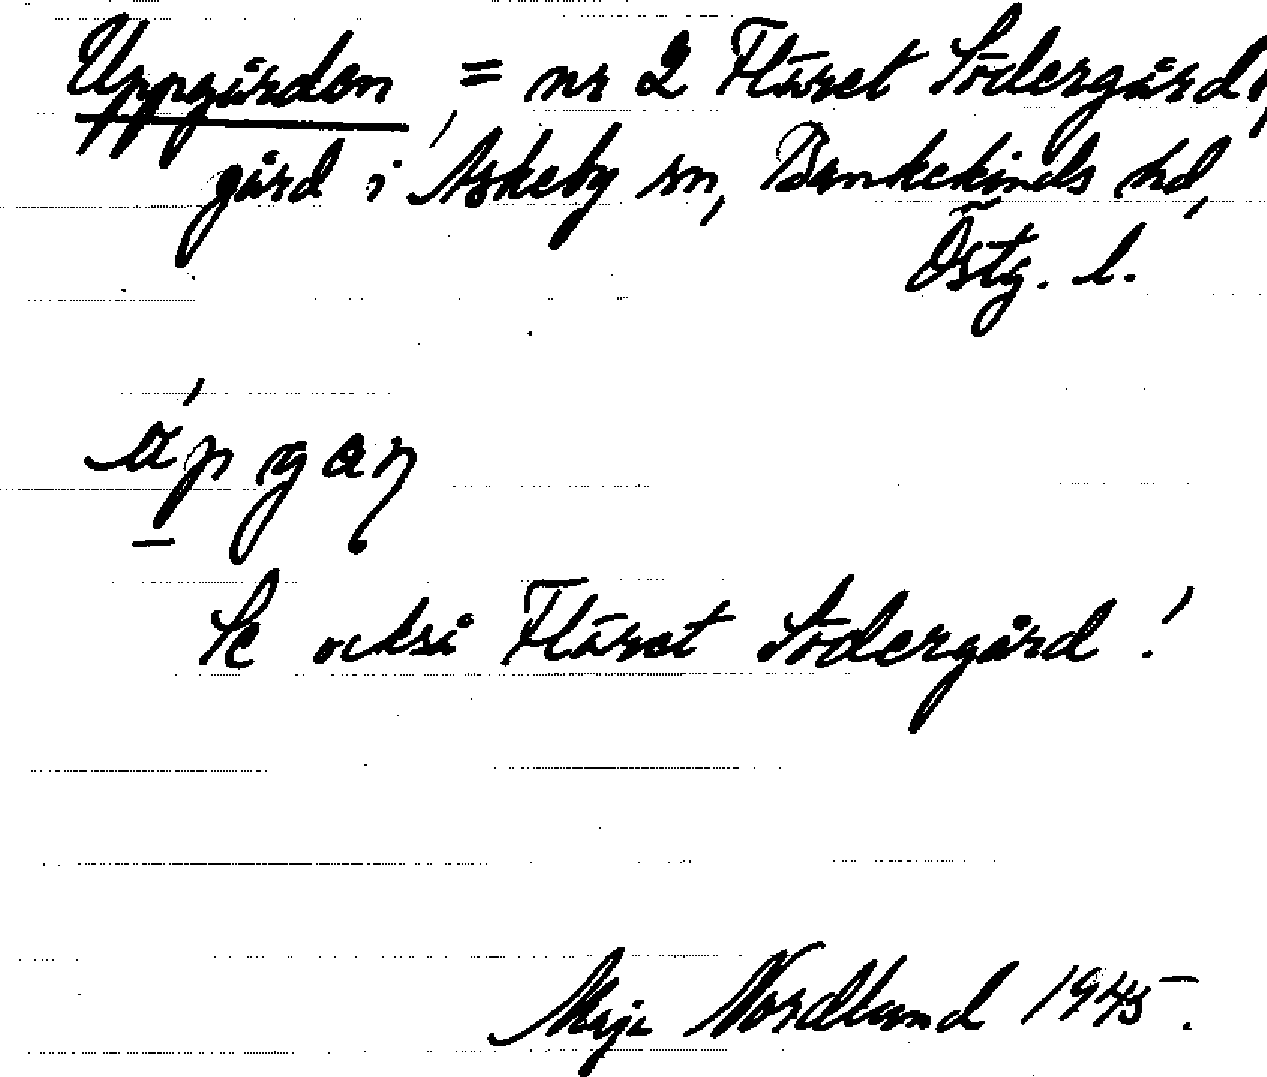 Uppgården, = nr 2 Fläret Södergård,
gård i Askeby sn, Bankekinds hd,
Östg. l.
ápgaɳ
Se också Fläret Södergård!
Maja Nordlund 1945.